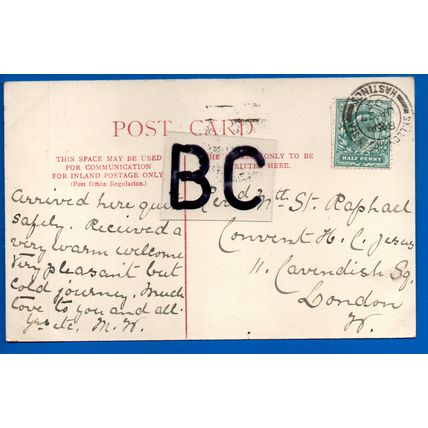 POST CARD
THIS SPACE MAY BE USED
FOR COMMUNICATION
FOR INLAND POSTAGE ONLY
(Post Office Regulation.)
ONLY TO BE
WRITTEN HERE.
BC
HALF PENNY
HASTINGS
Arrived here
safely. Received a
very warm welcome
Very pleasant but
cold journey. Much
love to you and all.
M. W.
Revd Mth. St. Raphael
Convent H. C. Jesus
11. Cavendish Sq.
London
W.